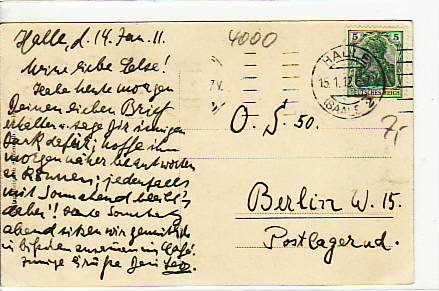 Halle, d. 14. Jan. 11.
4000
Meine liebe Else!
Habe heute morgen
Deinen lieben Brief
erhalten u. sage Dir innigen
Dank dafür; hoffe ihn
morgen näher beantworten
zu können; jedenfalls
mit Sonnabend bleibt's
dabei!! Heute Sonntag
abend sitzen wir gemütlich
in Café.
innige Grüße Dein Leo.
5 5
DEUTSCHES REICH
HALLE
15.1.12
(SAALE) 2
7,-
O. S. 50.
Berlin W. 15.
Postlagernd.